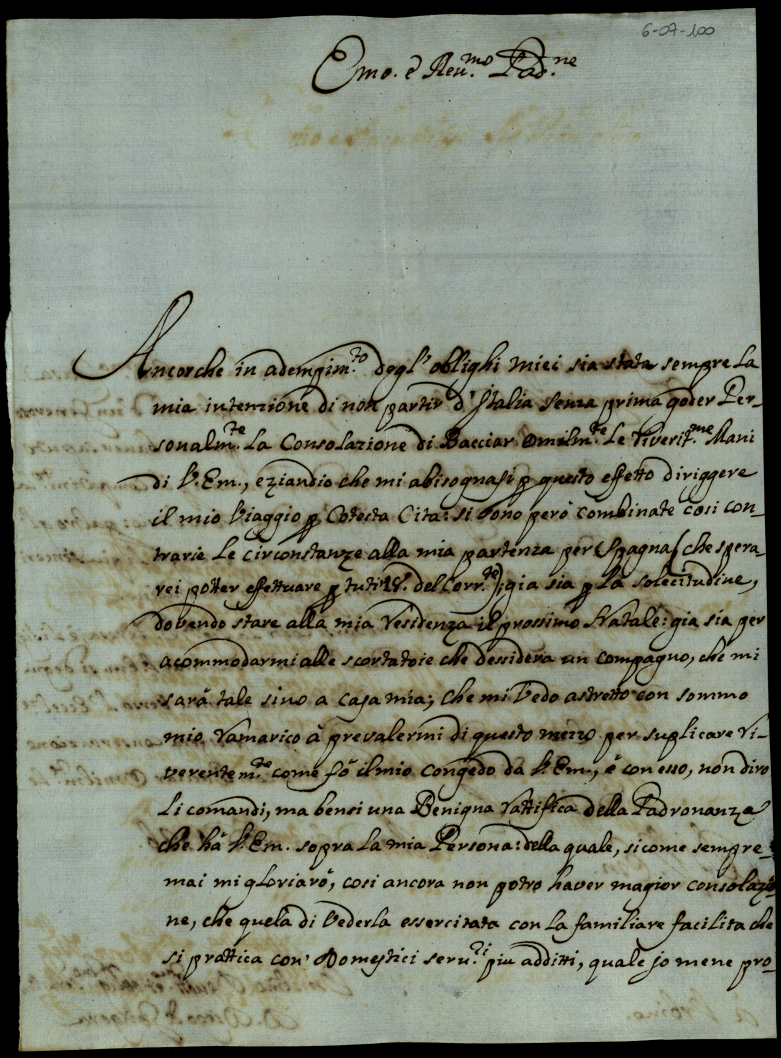 6-07-100
Emo. è Reu.mo Pad.ne
Ancorche in adempim.to degl' oblighi miei sia stata sempre La
mia intenzione di non partir d'Italia senza prima goder Per-
sonalm.te La Consolazione di Bacciar Omilm.te Le riverit.me Mani
di V. Em., eziandio che mi abisognasi p questo effetto diriggere
il mio Viaggio p Cotesta Cita: si sono però combinate cosi con-
trarie Le circonstanze alla mia partenza per Spagna (che spera-
rei potter effettuare p tutti 18. del Corr.te); gia sia p La solecitudine,
dovendo stare alla mia residenza il prossimo Natale: gia sia per
acommodarmi alle scortatoie che dessidera un compagno, che mi
sarà tale sino a casa mia; che mi Vedo astretto con sommo
mio ramarico à prevalermi di questo mezzo per suplicare ri-
verentem.te come fò il mio congedo da V. Em., è con esso, non diro
Li comandi, ma bensi una Benigna rattifica della Padronanza
che hà V. Em. sopra La mia Persona: della quale, sicome sempre
mai mi gloriarò, cosi ancora non potro haver magior consolazio-
ne, che quela di Vederla essercitata con La familiare facilita che
si prattica con' Domestici seru.ri piu additti, quale jo mene pro-